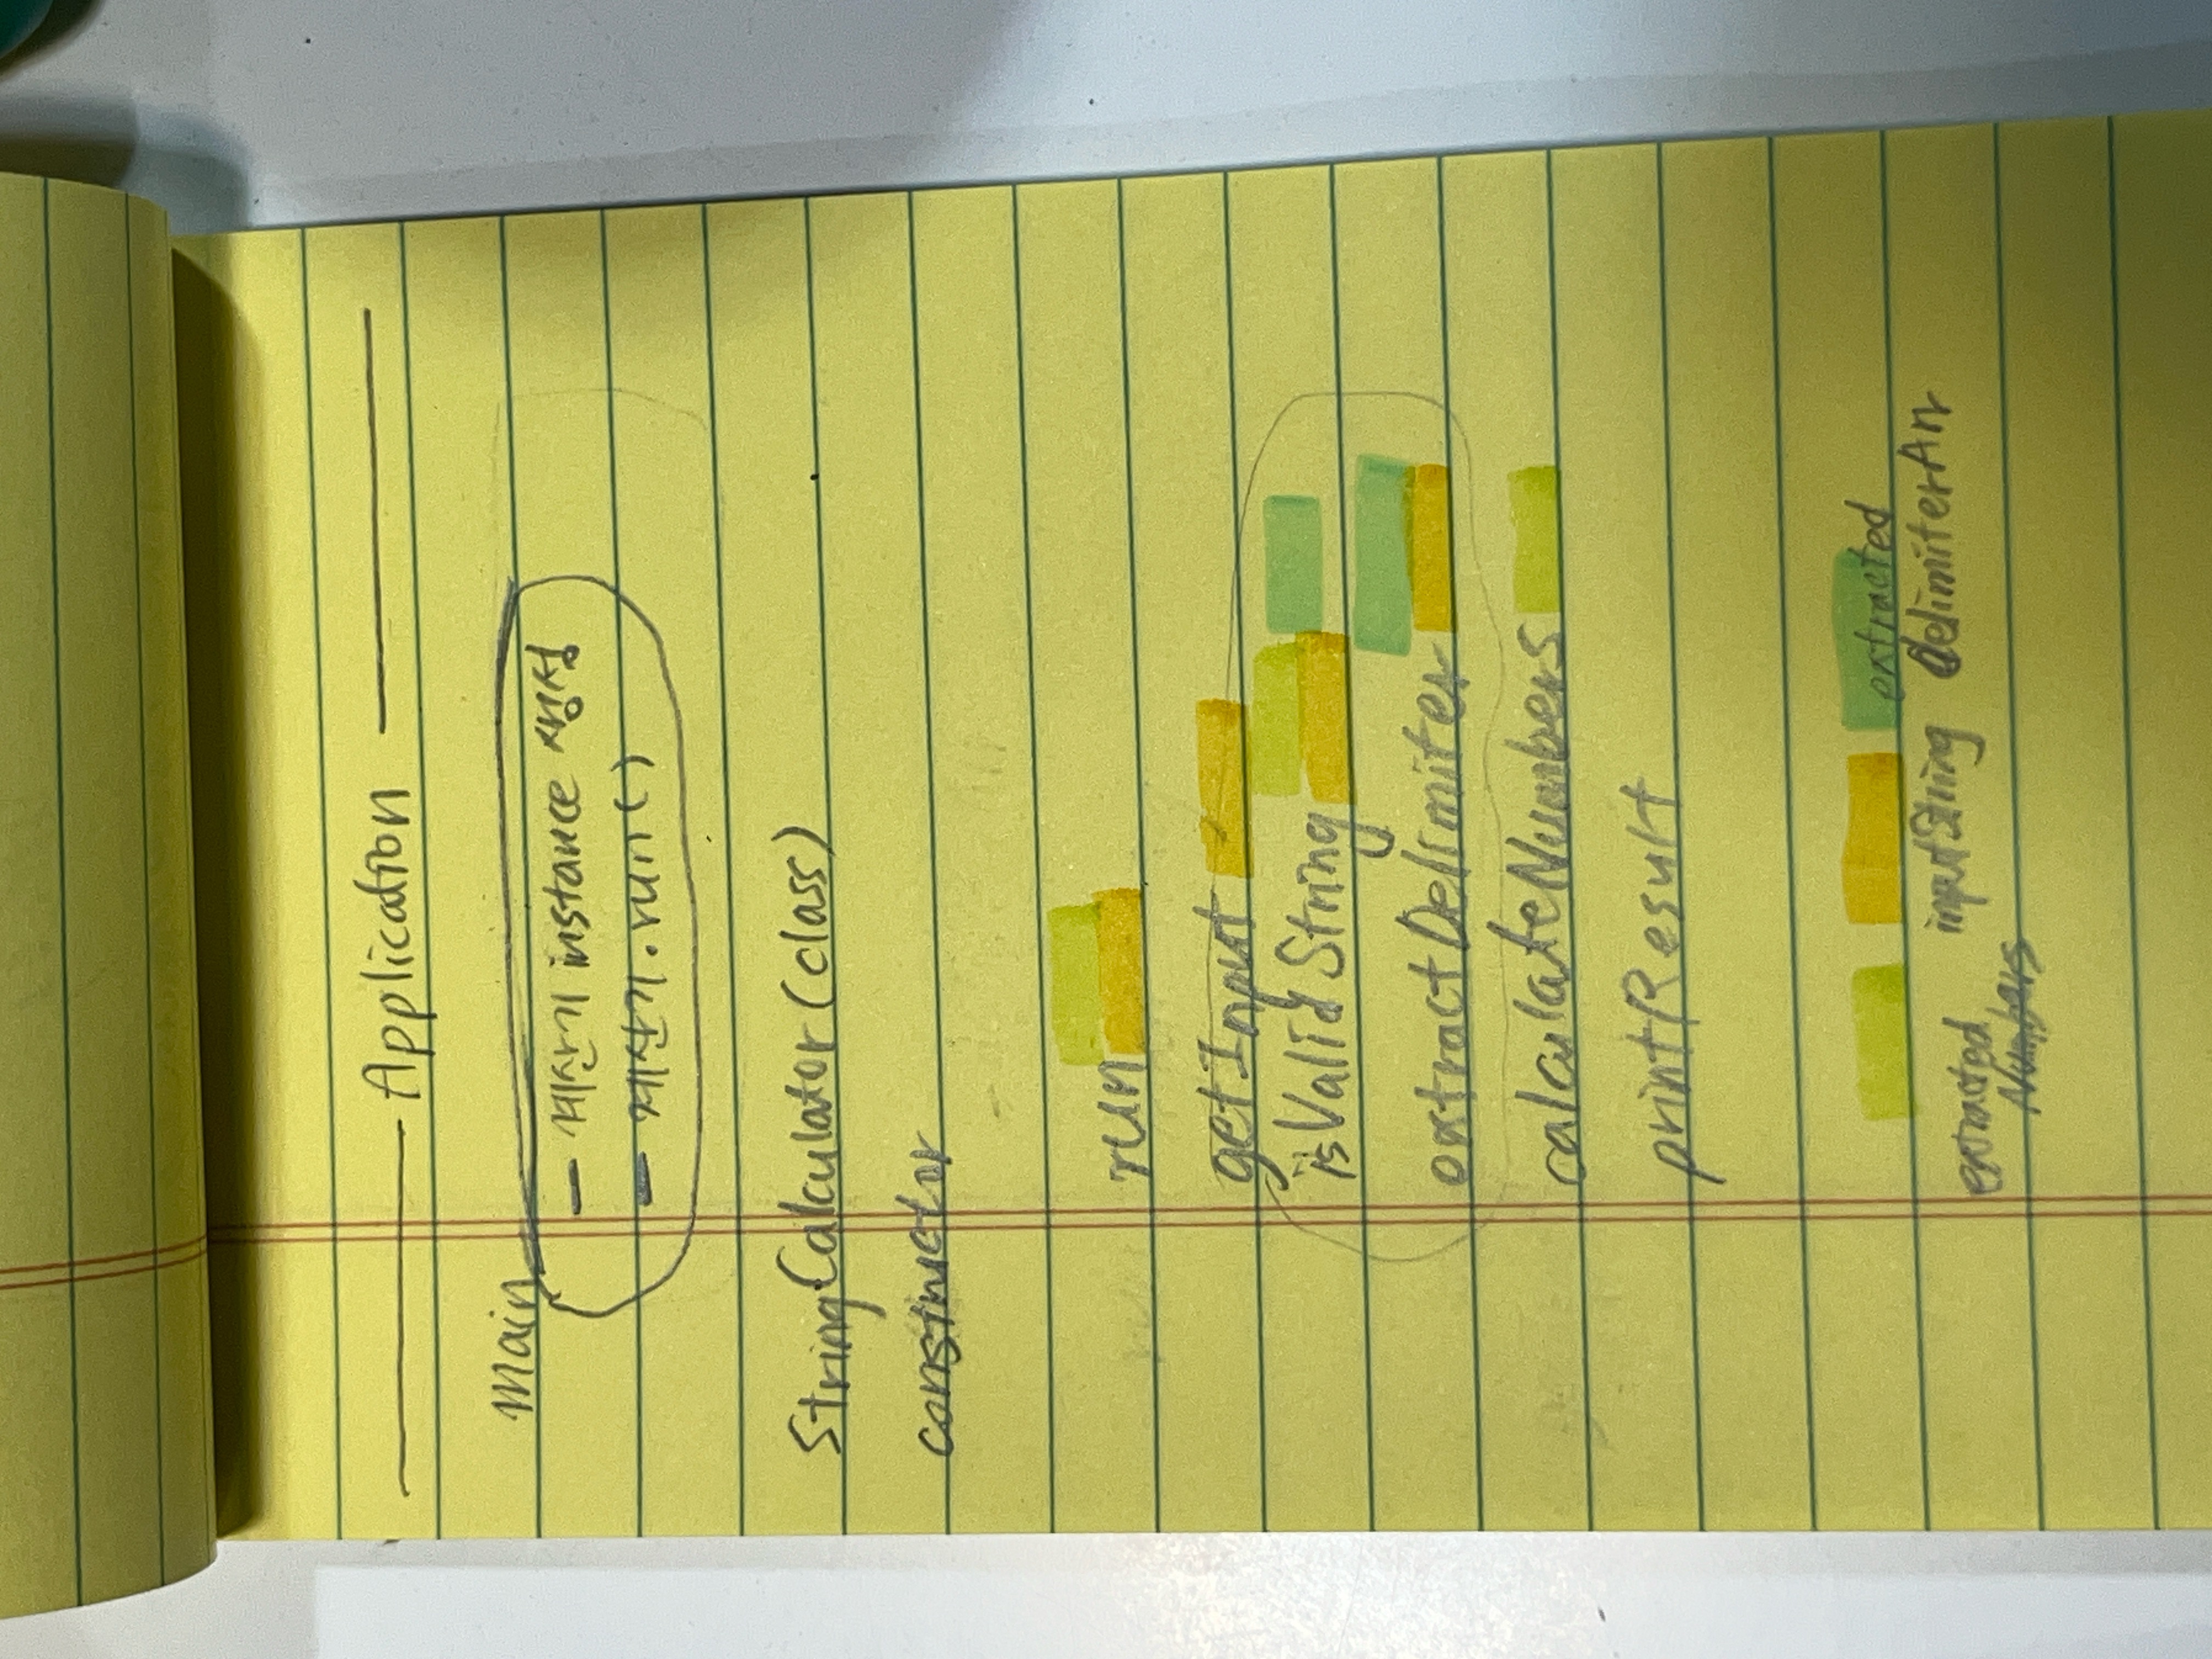 Application
main
- 계산기 instance 생성
- 계산기.run()
StringCalculator (class)
constructor
run
getInput
isValidString
extractDelimiter
calculateNumbers
printResult
extracted
Numbers
inputString
extracted
delimiterArr